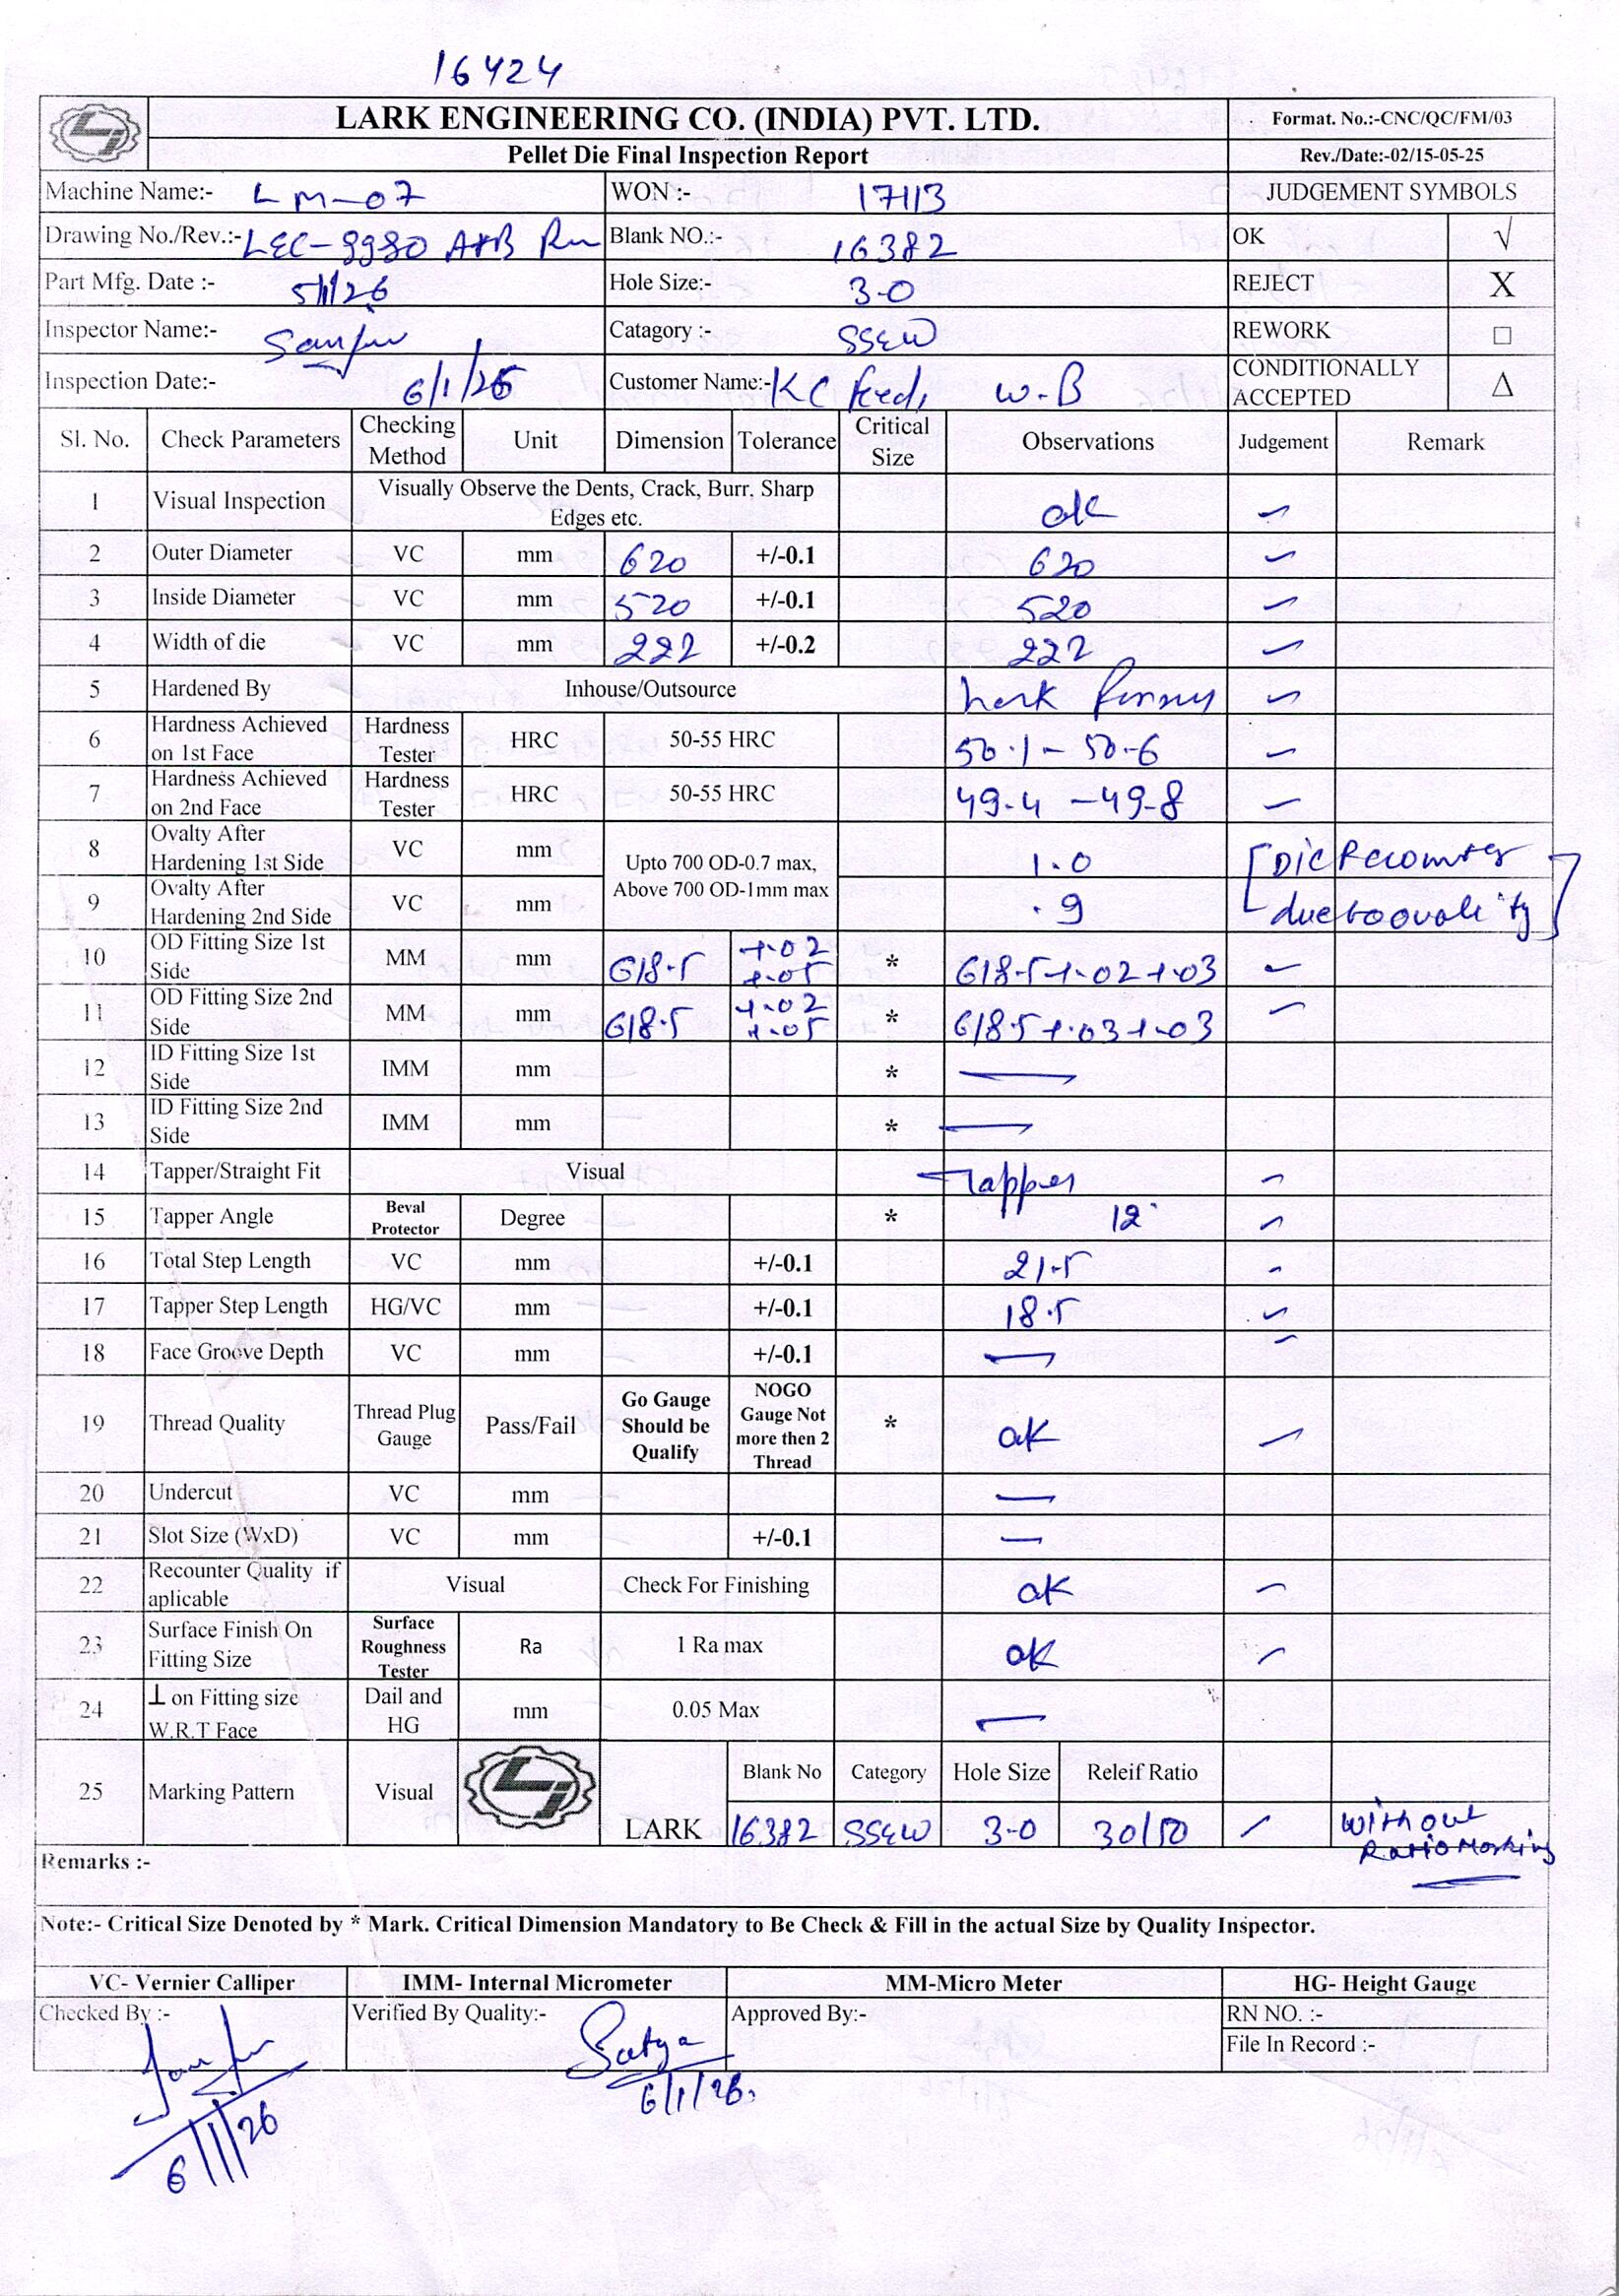 16424
LARK ENGINEERING CO. (INDIA) PVT. LTD.
Format. No.:-CNC/QC/FM/03
Pellet Die Final Inspection Report
Rev./Date:-02/15-05-25
Machine Name:- LM-07 WON :- 17113 JUDGEMENT SYMBOLS
Drawing No./Rev.:- LEC-9980 A+B Blank NO.:- 16382 OK √
Part Mfg. Date :- 5/1/26 Hole Size:- 3.0 REJECT X
Inspector Name:- Catagory :- SS&W REWORK □
Inspection Date:- 6/1/26 Customer Name:- KC feed, W.B CONDITIONALLY ACCEPTED Δ
Sl. No. Check Parameters Checking Method Unit Dimension Tolerance Critical Size Observations Judgement Remark
1 Visual Inspection Visually Observe the Dents, Crack, Burr, Sharp Edges etc. ok
2 Outer Diameter VC mm 620 +/-0.1 620
3 Inside Diameter VC mm 520 +/-0.1 520
4 Width of die VC mm 222 +/-0.2 222
5 Hardened By Inhouse/Outsource Lark
6 Hardness Achieved on 1st Face Hardness Tester HRC 50-55 HRC 50.1 - 50.6
7 Hardness Achieved on 2nd Face Hardness Tester HRC 50-55 HRC 49.4 - 49.8
8 Ovalty After Hardening 1st Side VC mm Upto 700 OD-0.7 max, Above 700 OD-1mm max 1.0 [Die Recounter
9 Ovalty After Hardening 2nd Side VC mm .9 due to ovality]
10 OD Fitting Size 1st Side MM mm 618.5 +.02 +.05 * 618.5+.02+.03
11 OD Fitting Size 2nd Side MM mm 618.5 +.02 +.05 * 618.5+.03+.03
12 ID Fitting Size 1st Side IMM mm * —
13 ID Fitting Size 2nd Side IMM mm * —
14 Tapper/Straight Fit Visual Tapper
15 Tapper Angle Beval Protector Degree * 12°
16 Total Step Length VC mm +/-0.1 21.5
17 Tapper Step Length HG/VC mm +/-0.1 18.5
18 Face Groove Depth VC mm +/-0.1 —
19 Thread Quality Thread Plug Gauge Pass/Fail Go Gauge Should be Qualify NOGO Gauge Not more then 2 Thread * ok
20 Undercut VC mm —
21 Slot Size (WxD) VC mm +/-0.1 —
22 Recounter Quality if aplicable Visual Check For Finishing ok
23 Surface Finish On Fitting Size Surface Roughness Tester Ra 1 Ra max ok
24 ⊥ on Fitting size W.R.T Face Dail and HG mm 0.05 Max —
25 Marking Pattern Visual LARK Blank No Category Hole Size Releif Ratio
16382 SS&W 3.0 30/50 Without Ratio Marking
Remarks :-
Note:- Critical Size Denoted by * Mark. Critical Dimension Mandatory to Be Check & Fill in the actual Size by Quality Inspector.
VC- Vernier Calliper IMM- Internal Micrometer MM-Micro Meter HG- Height Gauge
Checked By :- Verified By Quality:- Satya Approved By:- RN NO. :-
File In Record :-
6/1/26
6/1/26